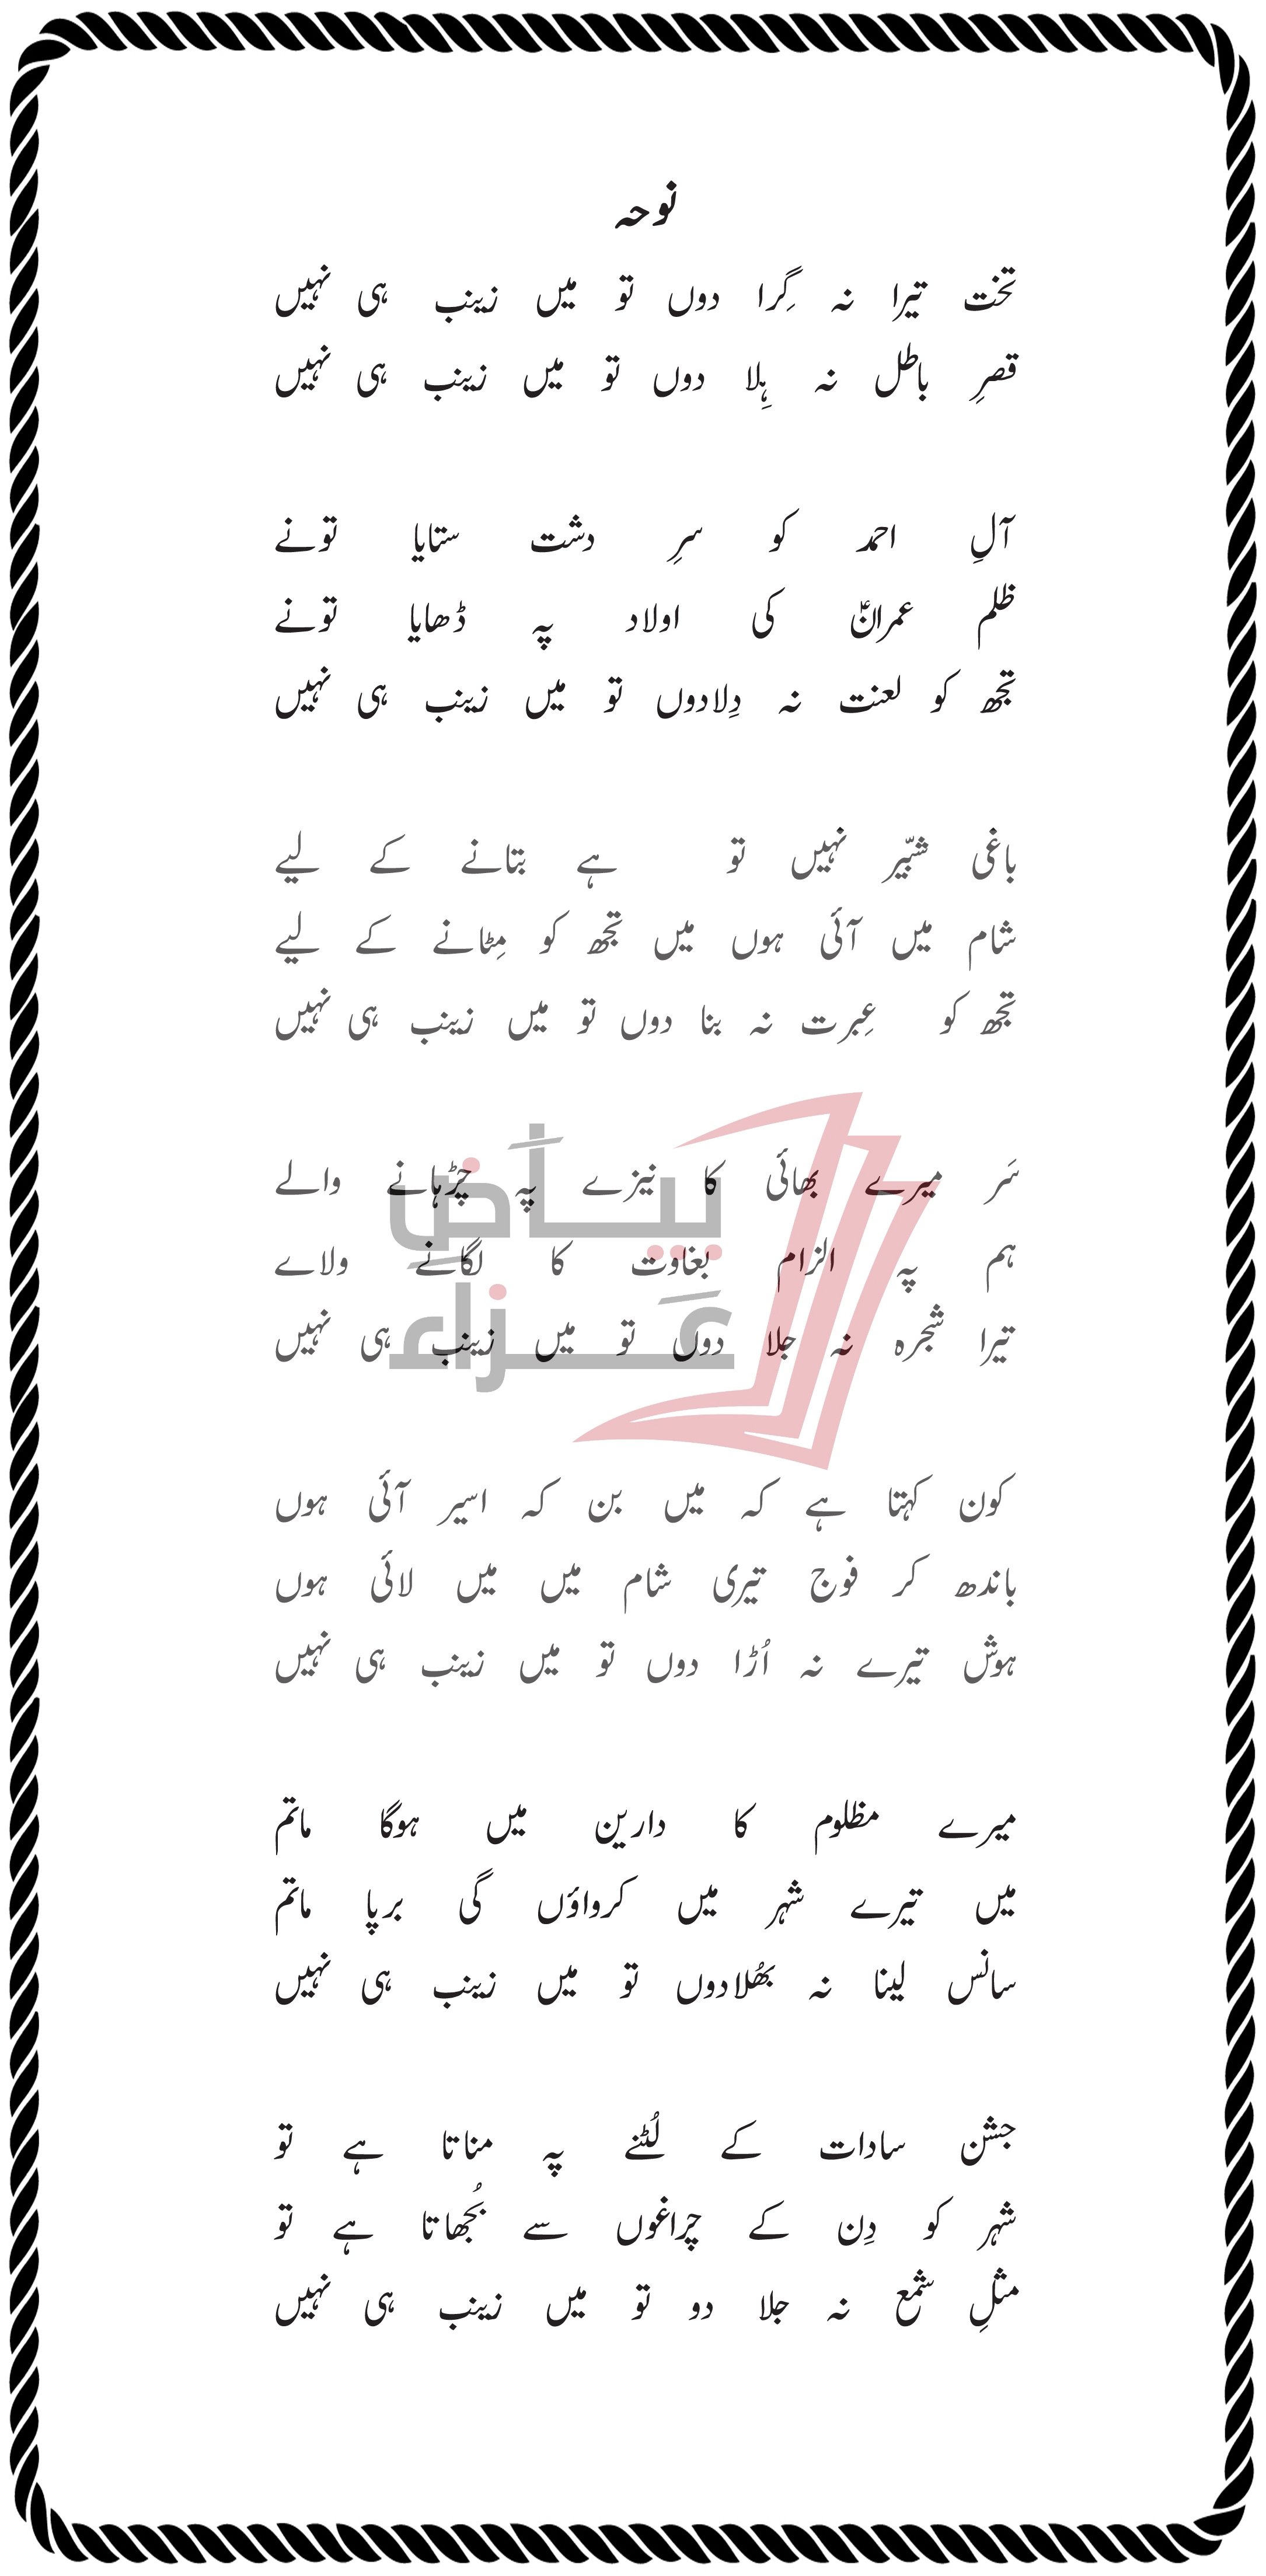 نوحہ
تخت تیرا نہ گِرا دوں تو میں زینب ہی نہیں
قصرِ باطل نہ ہِلا دوں تو میں زینب ہی نہیں
آلِ احمد کو سرِ دشت ستایا تونے
ظلم عمرانؑ کی اولاد پہ ڈھایا تونے
تجھ کو لعنت نہ دِلادوں تو میں زینب ہی نہیں
باغی شبّیر نہیں تو ہے بتانے کے لیے
شام میں آئی ہوں میں تجھ کو مِٹانے کے لیے
تجھ کو عِبرت نہ بنا دوں تو میں زینب ہی نہیں
سَر میرے بھائی کا نیزے پہ چڑہانے والے
ہم پہ الزام بغاوت کا لگانے ولاے
تیرا شجرہ نہ جلا دوں تو میں زینب ہی نہیں
بیاض
عزاء
کون کہتا ہے کہ میں بن کہ اسیر آئی ہوں
باندھ کر فوج تیری شام میں میں لائی ہوں
ہوش تیرے نہ اُڑا دوں تو میں زینب ہی نہیں
میرے مظلوم کا دارین میں ہوگا ماتم
میں تیرے شہر میں کرواؤں گی برپا ماتم
سانس لینا نہ بھُلادوں تو میں زینب ہی نہیں
جشن سادات کے لُٹنے پہ مناتا ہے تو
شہر کو دِن کے چراغوں سے بُجھاتا ہے تو
مثلِ شمع نہ جلا دو تو میں زینب ہی نہیں